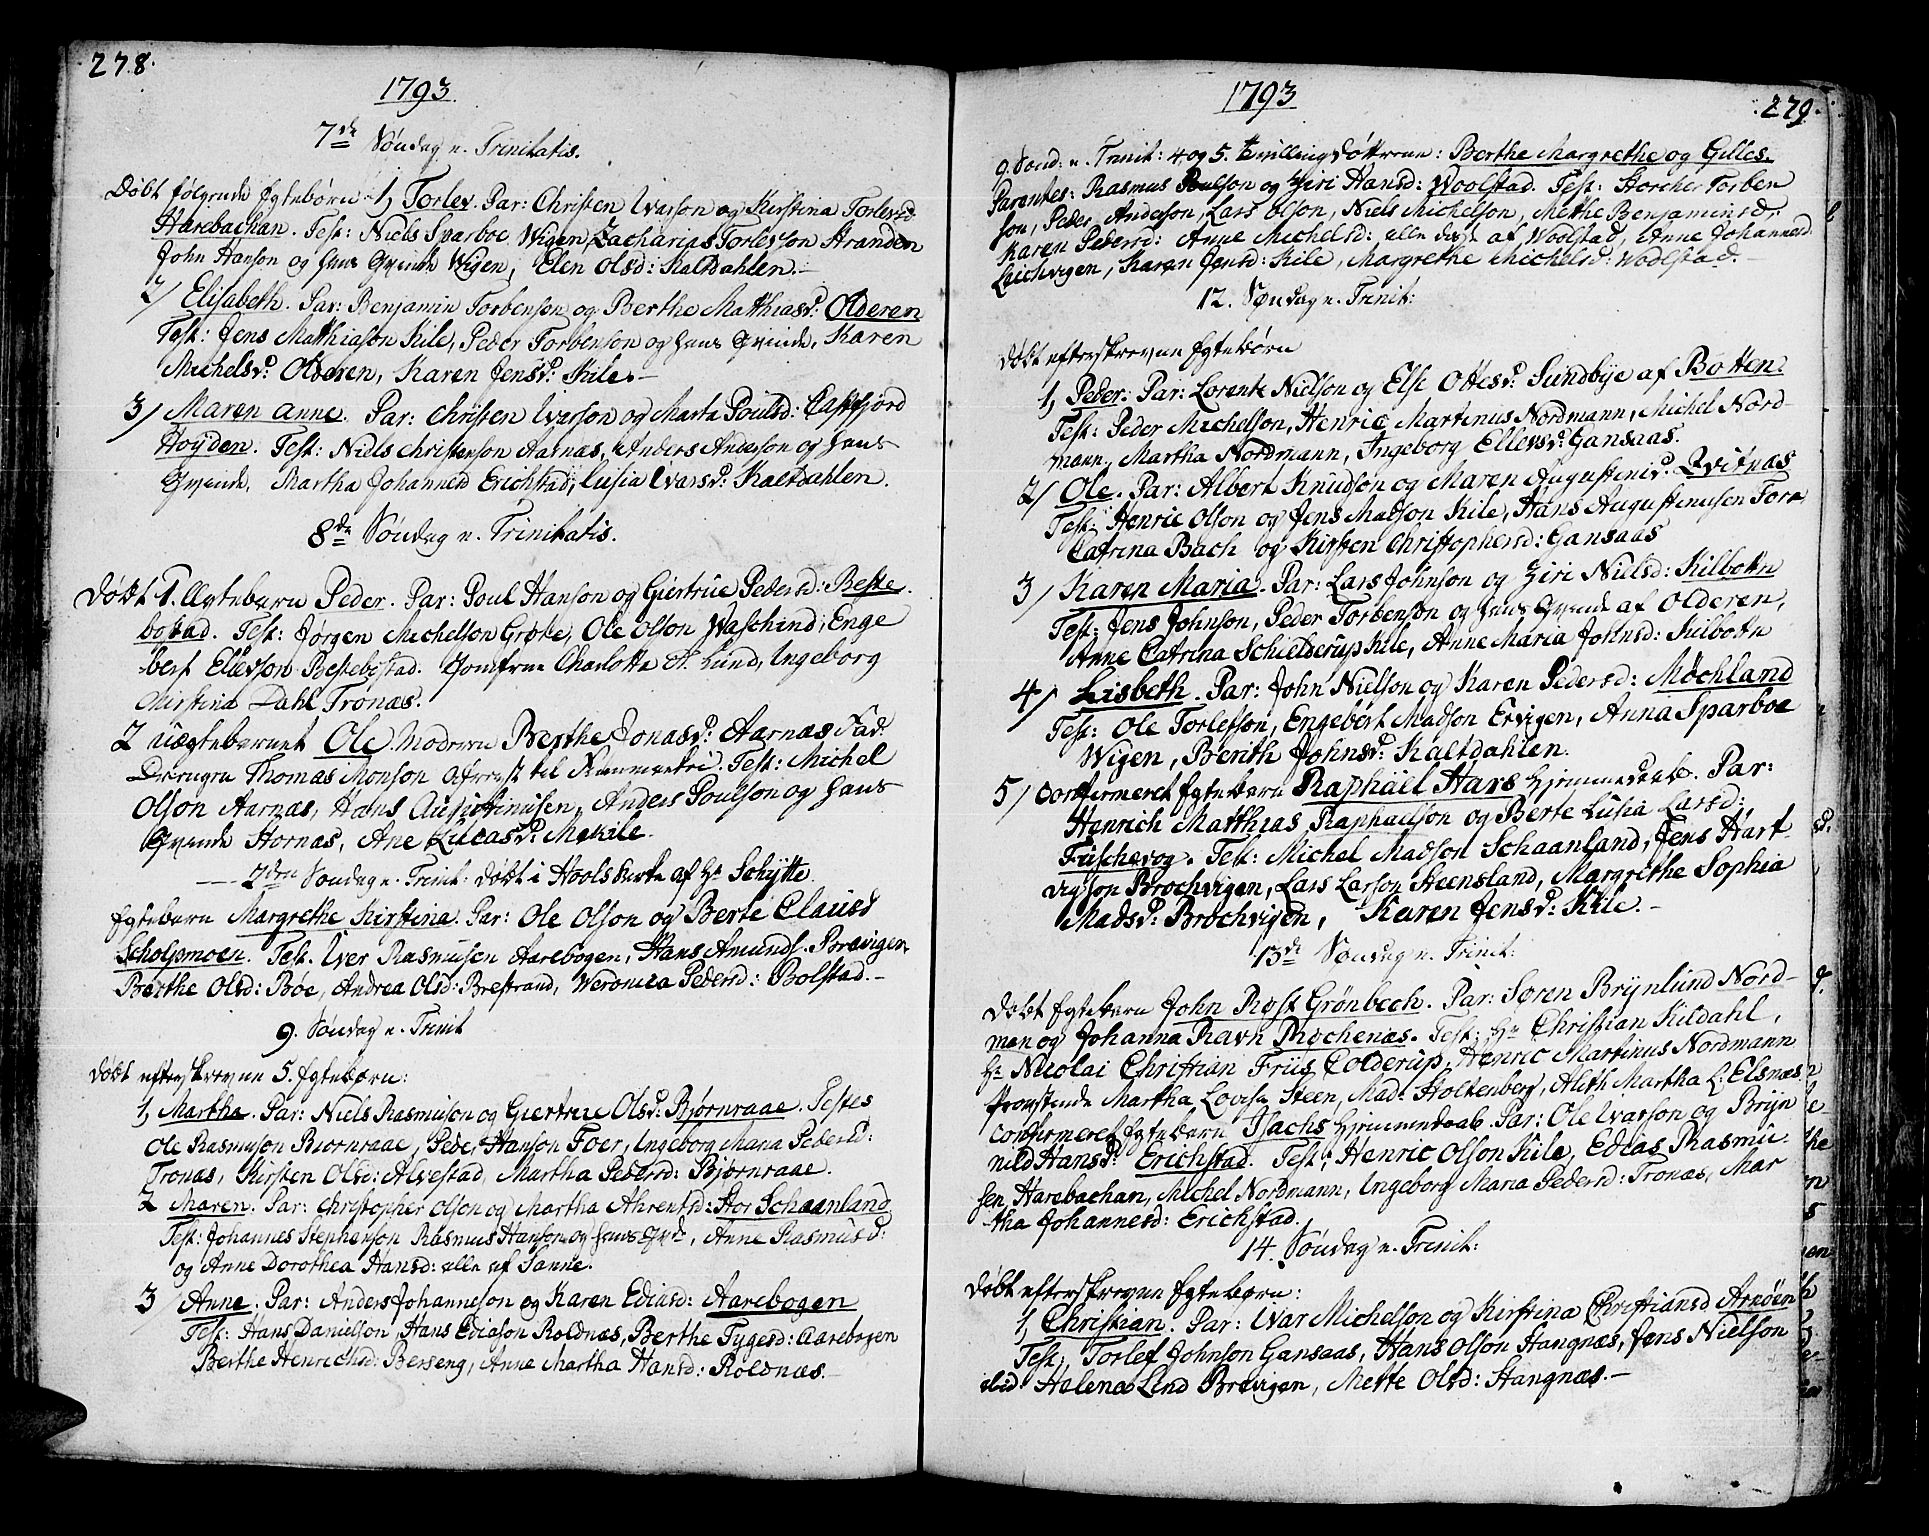 278.
1793.
7de Søndag n. Trinitatis.
Døbt følgende Ægtebørn 1, Torlev. Par: Christen Ivarson og Kirstina Torlevsd
Harebachan. Test: Niels Sparboe Wigen, Zacharias Torlefson Stranden
John Hanson og hans Qvinde Wigen, Elen Olsd: Kaltdahlen.
2/ Elisabeth. Par: Benjamin Torbenson og Berthe Matthiasd: Olderen
Test: Jens Matthiason Kile, Peder Torbenson og hans Qvinde, Karen
Michelsd: Olderen, Karen Jensd: Kile.
3/ Maren Anne. Par: Christen Ivarson og Marta Poulsd: Castfjord
Høyden. Test: Niels Christenson Aarnæs, Anders Anderson og hans
Qvinde, Martha Johannesd Erichstad, Lusia Ivarsd: Kaltdahlen.
8de Søndag n. Trinitatis.
Døbt 1. Ægtebarn Peder. Par: Poul Hanson og Giertrue Pedersd: Beste
bostad. Test: Jørgen Michelson Grøte, Ole Olson Waschind, Enge
bert Elievson Bestebostad. Jomfrue Charlotta A. Lund, Ingeborg
Kirstina Dahl Tronæs.
2 uægtebarnet Ole Modern Berthe Jonasd: Aarnæs Fad:
Drengen Thomas Monson Test: Michel
Olson Aarnæs, Hans Augustinusen, Anders Poulson og hans
Qvinde Hornæs, Ane Lucasd: Mekile.
7den Søndag n. Trinit: døbt i Hools Kirke af Hr Schytte
Ægtebarn Margrethe Kirstina. Par: Ole Olson og Berte Clausd
Scholpmoen. Test. Iver Rasmusen Aarebogen, Hans Amunds. Brævigen
Berthe Olsd: Bøe, Andrea Olsd: Brestrand, Veronica Pedersd: Bolstad.
9. Søndag n. Trinit
Døbt efterskrevne 5. Ægtebørn:
1, Martha. Par: Niels Rasmuson og Giertrue Olsd: Bjørnraae. Testes
Ole Rasmuson Biornraae, Peder Hanson Foer, Ingeborg Maria Pedersd:
Tronæs, Kirsten Olsd: Alvestad, Martha Pedersd: Bjørnraae.
2 Maren. Par: Christopher Olson og Martha Ahrentsd: Stor Schaanland
Test: Johannes Stephenson Rasmus Hanson og hans Qvde, Anne Rasmusd:
og Anne Dorothea Hansd: alle af Sanne.
3/ Anne. Par: Anders Johanneson og Karen Ediasd: Aarebogen
Test: Hans Danielson, Hans Ediason Roldnæs, Berthe Tygesd: Aarebogen
Berthe Henrichsd: Berseng, Anne Martha Hansd: Roldnæs.
1793
279.
9. Sønd: n. Trinit: 4 og 5. Tvillingdøttrene: Berthe Margrethe og Gilles.
Parentes: Rasmus Poulson og Siri Hansd: Woolstad. Test: Storcher Torben
son, Peder Anderson, Lars Olson, Niels Michelson, Methe Benjaminsd,
Karen Pedersd: Anne Michelsd: alle disse af Woolstad, Anne Johannesd
Leichvigen, Karen Jensd: Kile, Margrethe Michelsd: Woolstad.
12. Søndag n. Trinit:
Døbt efterskrevne Ægtebørn
1, Peder. Par: Lorentz Nielson og Else Ottesd: Sundbye af Botten.
Test: Peder Michelson, Henric Martinus Nordmann, Michel Nord-
mann, Martha Nordmann, Ingeborg Ellevsd: Gansaas.
2/ Ole. Par: Albert Knudson og Maren Augustinid: Qvitnæs
Test: Henric Olson og Jens Madson Kile, Hans Augustinusen Foer
Catrina Bach og Kirsten Christophersd: Gansaas
3/ Karen Maria. Par: Lars Johnson og Siri Nielsd: Kilbottn
Test: Jens Johnson, Peder Torbenson og hans Qvinde af Olderen,
Anne Catrina Schielderup Kile, Anne Maria Johnsd: Kilbottn
4/ Lisbeth. Par: John Nielson og Karen Pedersd: Møchland
Test: Ole Torlefson, Engebert Madson Ervigen, Anna Sparboe
Wigen, Berith Johnsd: Kaltdahlen.
5/ Confirmeret Ægtebarn Raphael Hars Hjemmedaab. Par:
Henrich Matthias Raphaelson og Berte Lusia Larsd:
Fuschevog. Test: Michel Madson Schaanland, Jens Hart-
vigson Brochvigen, Lars Larson Steensland, Margrethe Sophia
Madsd: Brochvigen, Karen Jensd: Kile.
13de Søndag n. Trinit:
Døbt Ægtebarn John Rost Grønbech. Par: Søren Brynlund Nord-
man og Johanna Ravn Røchenæs. Test: Hr Christian Kildahl,
Hr Nicolai Christian Friis Colderup, Henric Martinus Nordmann
Provstinde Martha Lovisa Steen, Mad: Holtenberg, Alith Martha L. Elsnæs
Confirmeret Ægtebarn Isachs Hjemmedaab. Par: Ole Ivarson og Bryn
nild Hansd: Erichstad. Test: Henric Olson Kile, Edias Rasmu
sen Harebachan, Michel Nordmann, Ingeborg Maria Pedersd: Tronæs, Mar
tha Johannesd: Erichstad.
14. Søndag n. Trinit:
Døbt efterskrevne Ægtebørn:
1, Christian. Par: Ivar Michelson og Kirstina Christiansd Arnøen
Test, Torlef Johnson Gansaas, Hans Olson Hangnæs, Jens Nielson
ibid: Helena Lind Brævigen, Mette Olsd: Stangnæs.